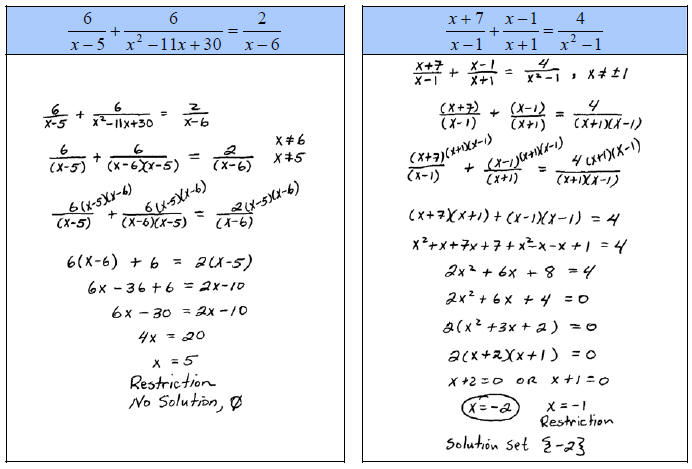 6/(x−5) + 6/(x² −11x+30) = 2/(x−6)
6/(x-5) + 6/(x²-11x+30) = 2/(x-6)
6/(x-5) + 6/((x-6)(x-5)) = 2/(x-6) x≠6
x≠5
6(x-5)(x-6)/(x-5) + 6(x-5)(x-6)/((x-6)(x-5)) = 2(x-5)(x-6)/(x-6)
6(x-6) + 6 = 2(x-5)
6x - 36 + 6 = 2x-10
6x - 30 = 2x-10
4x = 20
x = 5
Restriction
No Solution, ∅
(x+7)/(x−1) + (x−1)/(x+1) = 4/(x² −1)
(x+7)/(x-1) + (x-1)/(x+1) = 4/(x²-1) , x≠ ±1
(x+7)/(x-1) + (x-1)/(x+1) = 4/((x+1)(x-1))
(x+7)(x+1)(x-1)/(x-1) + (x-1)(x+1)(x-1)/(x+1) = 4(x+1)(x-1)/((x+1)(x-1))
(x+7)(x+1) + (x-1)(x-1) = 4
x²+x+7x+7+x²-x-x+1 = 4
2x² + 6x + 8 = 4
2x² + 6x + 4 = 0
2(x² + 3x + 2) = 0
2(x+2)(x+1) = 0
x+2=0 OR x+1=0
x=-2 x=-1
Restriction
Solution set {-2}